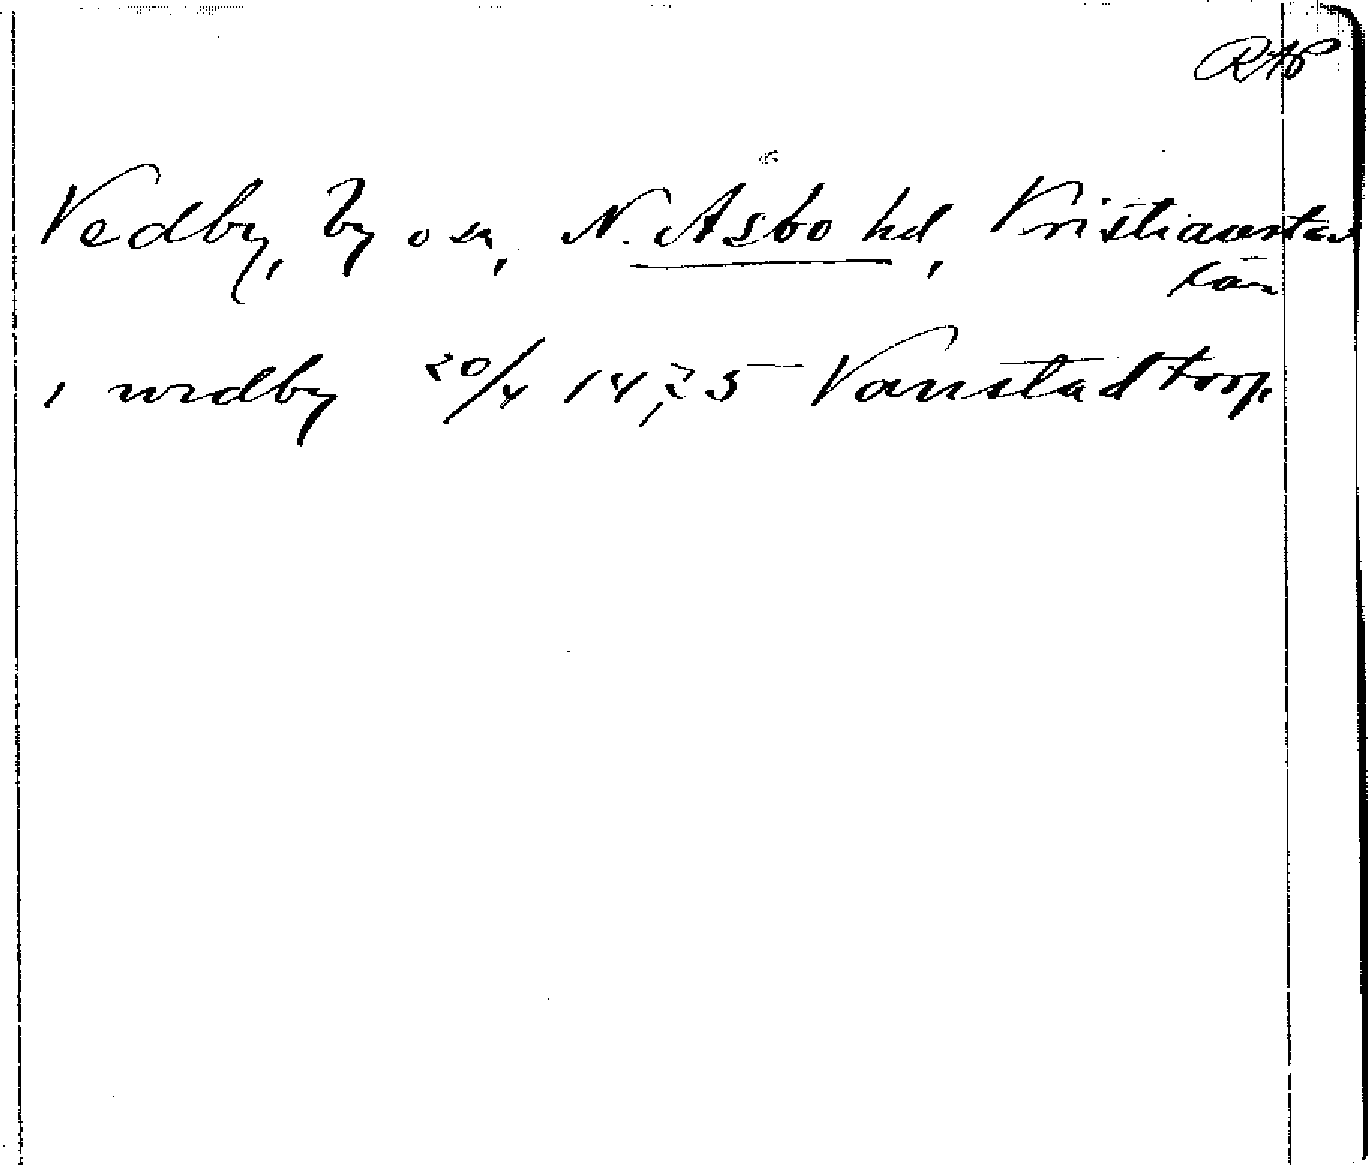 RAP
Vedby, by o sn, N. Åsbo hd, Kristianstads
län
i wedby 20/4 1425 Vanstadtorp.